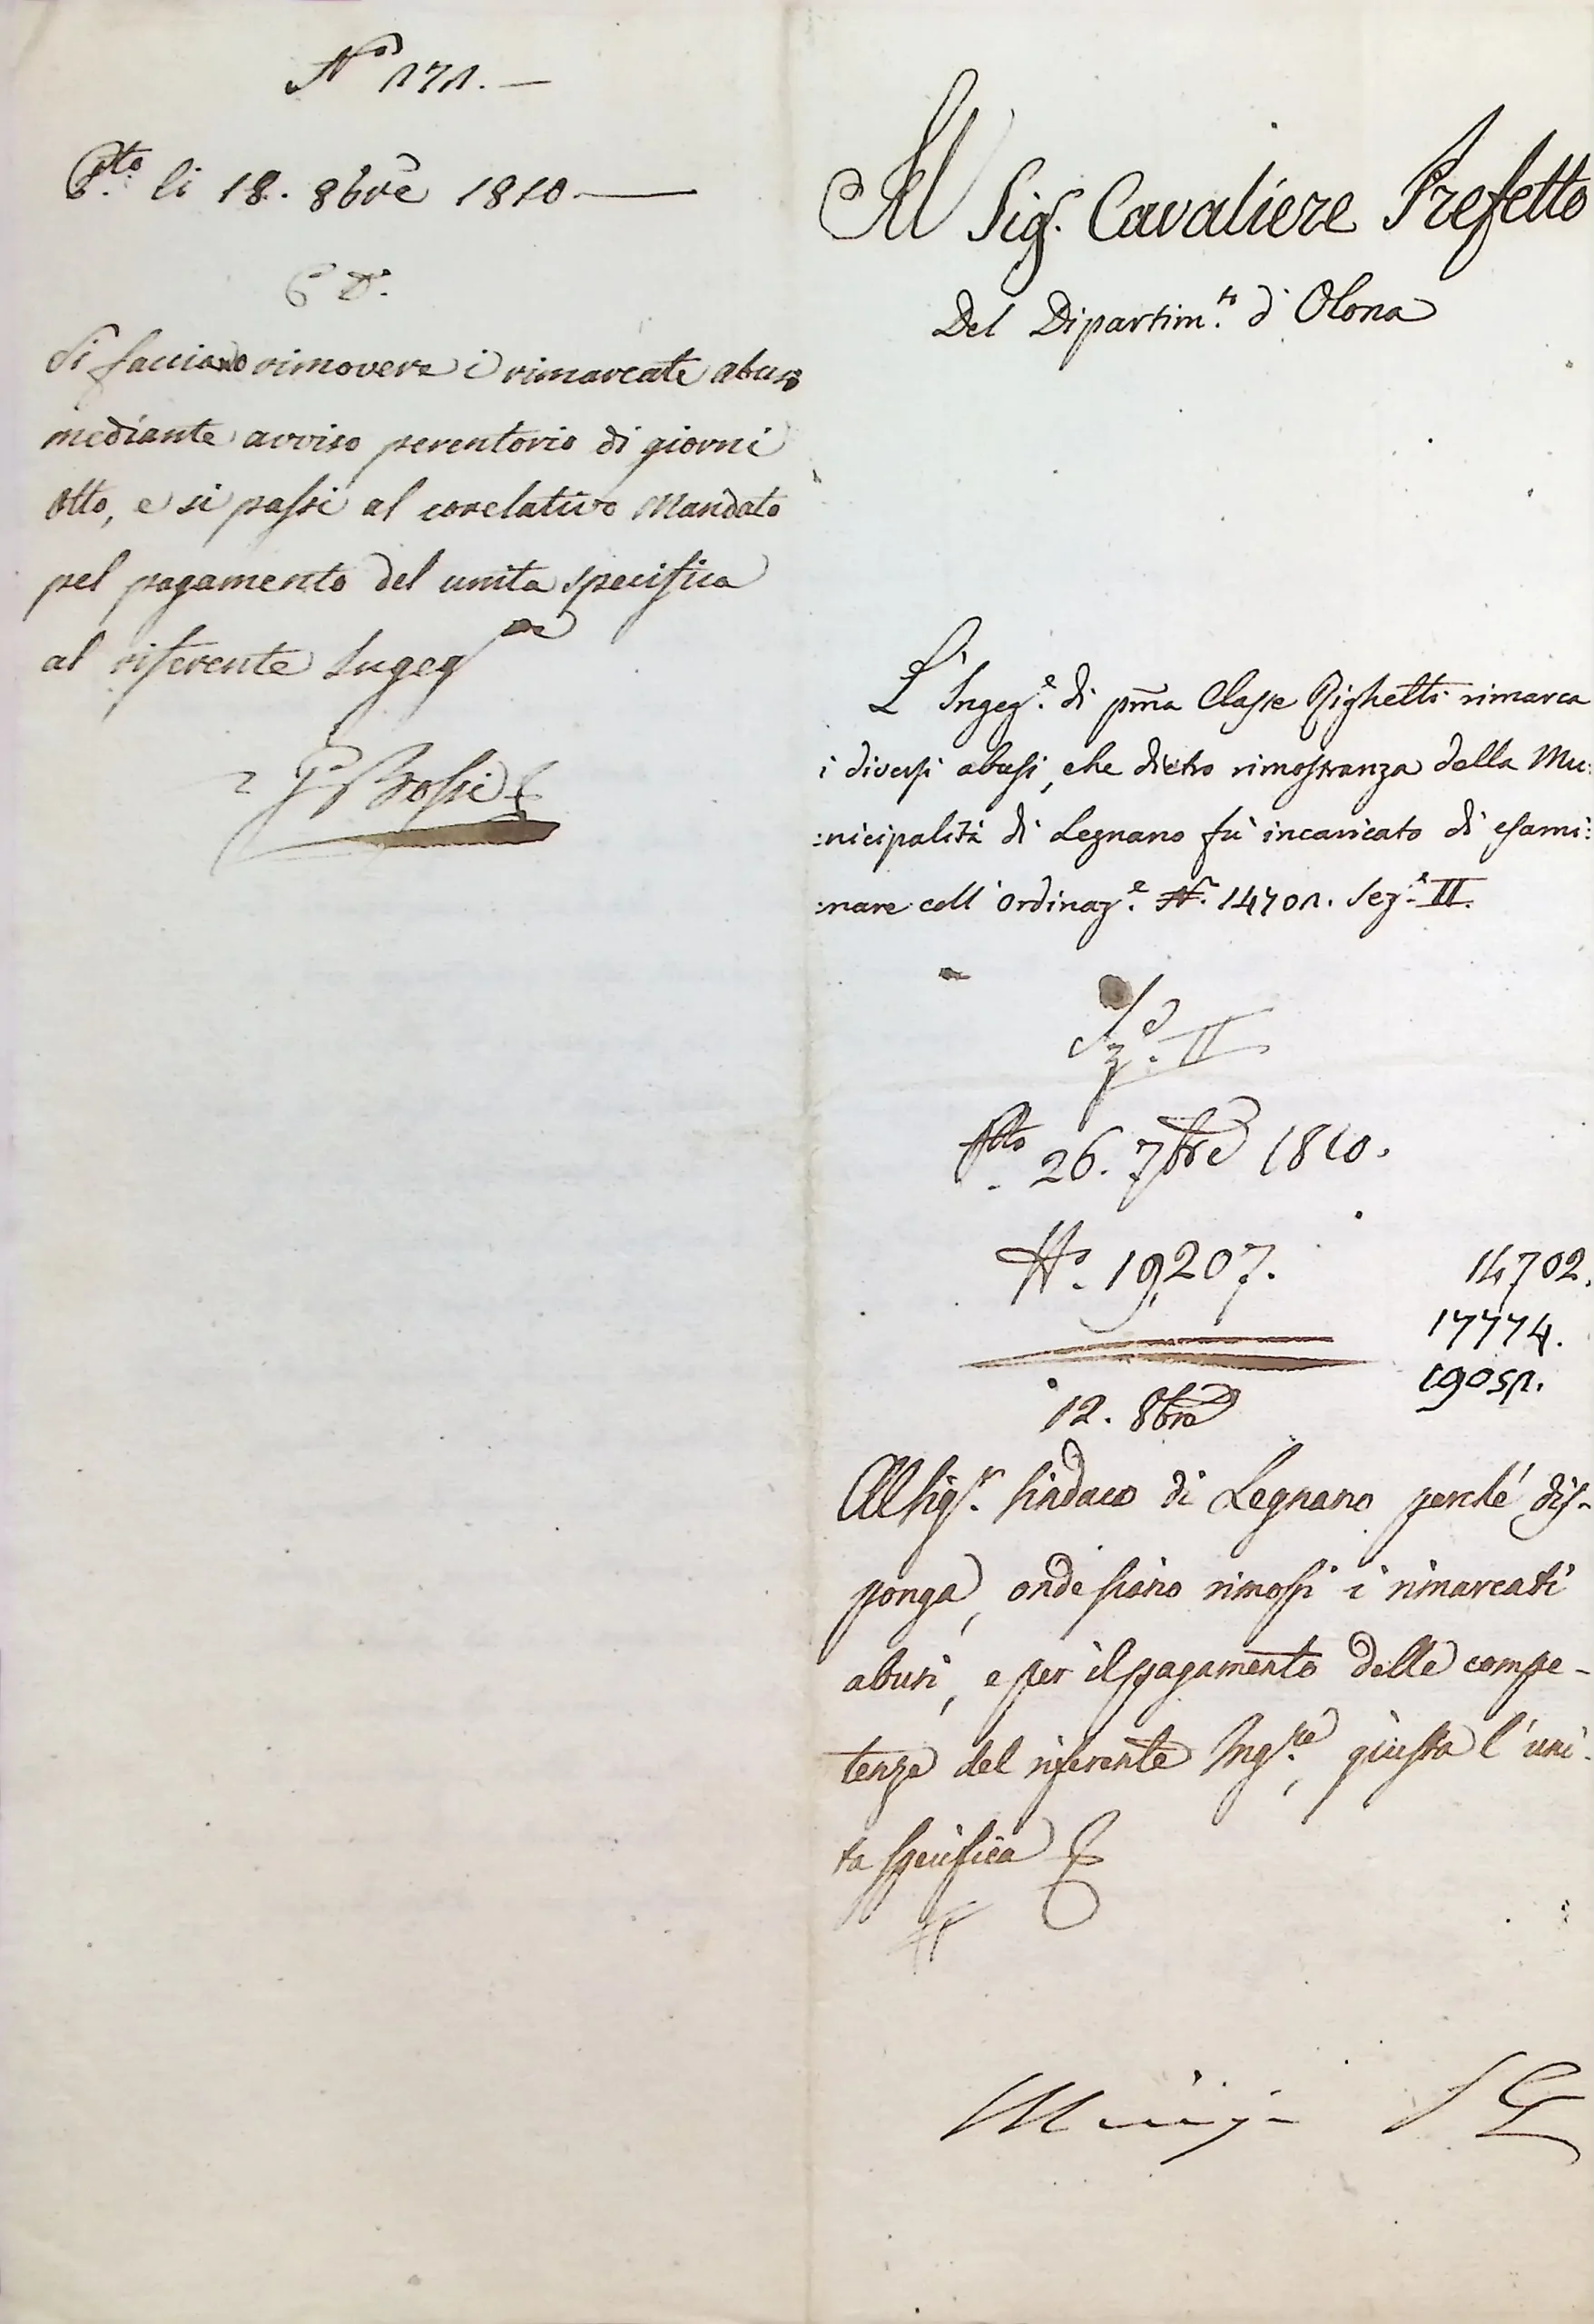 N.o 171. —
P.to li 18. 8bre 1810 —
Si facciano rimovere i rimarcate abusi
mediante avviso perentorio di giorni
otto, e si passi al corelativo Mandato
pel pagamento del unita specifica
al riferente Ingeg.re
Bossi
Al Sig.r Cavaliere Prefetto
Del Dipartim.to d'Olona
L'Ingeg.e di pma Classe Righetti rimarca
i diversi abusi, che dietro rimostranza della Mu:
:nicipalità di Legnano fù incaricato di esami:
:nare coll'ordinaz.e N.o 14701. Sez.e II.
Sz.e II
P.to 26. 7bre 1810.
N.o 19,207.
14702.
17774.
19051.
12. 8bre
Al Sig.r Sindaco di Legnano perché dis-
ponga, onde siano rimossi i rimarcati
abusi, e per il pagamento delle compe-
tenze del riferente Ing.re, giusta l'uni-
ta specifica